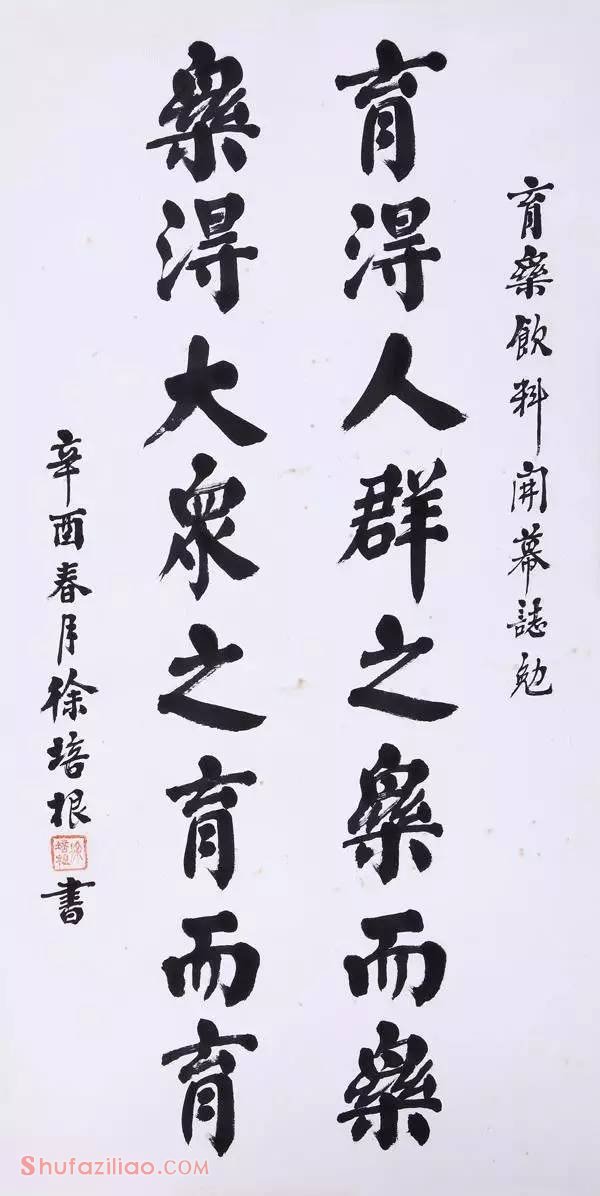 育樂飲料開幕誌勉
育得人群之樂而樂
樂得大眾之育而育
辛酉春月徐培根書
徐培根
Shufaziliao.COM